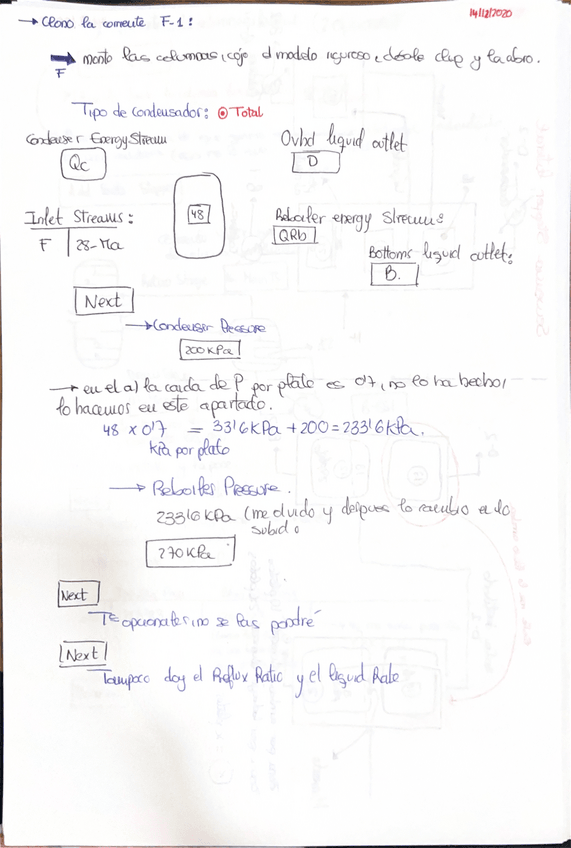 14/12/2020
→ Clono la corriente F-1:
→ monto las columnas, cojo el modelo riguroso, doble clic y la abro.
F
Tipo de Condensador: ⊙ Total
Condenser Energy Stream
Qc
Ovhd liquid outlet
D
Inlet Streams:
F | 28-Ma
48
Reboiler energy Stream:
QRb
Bottoms liquid outlet:
B.
Next
→ Condenser Pressure
200 KPa
→ en el a) la caída de P por plato es 0'7, no lo ha hecho,
lo hacemos en este apartado.
48 x 0'7 = 33'6 KPa + 200 = 233'6 KPa.
KPa por plato
→ Reboiler Pressure.
233'6 KPa (me olvido y después lo cambio en lo
subido
270 KPa
Next
Tª opcionales, no se las pondré
Next
Tampoco doy el Reflux Ratio y el liquid Rate